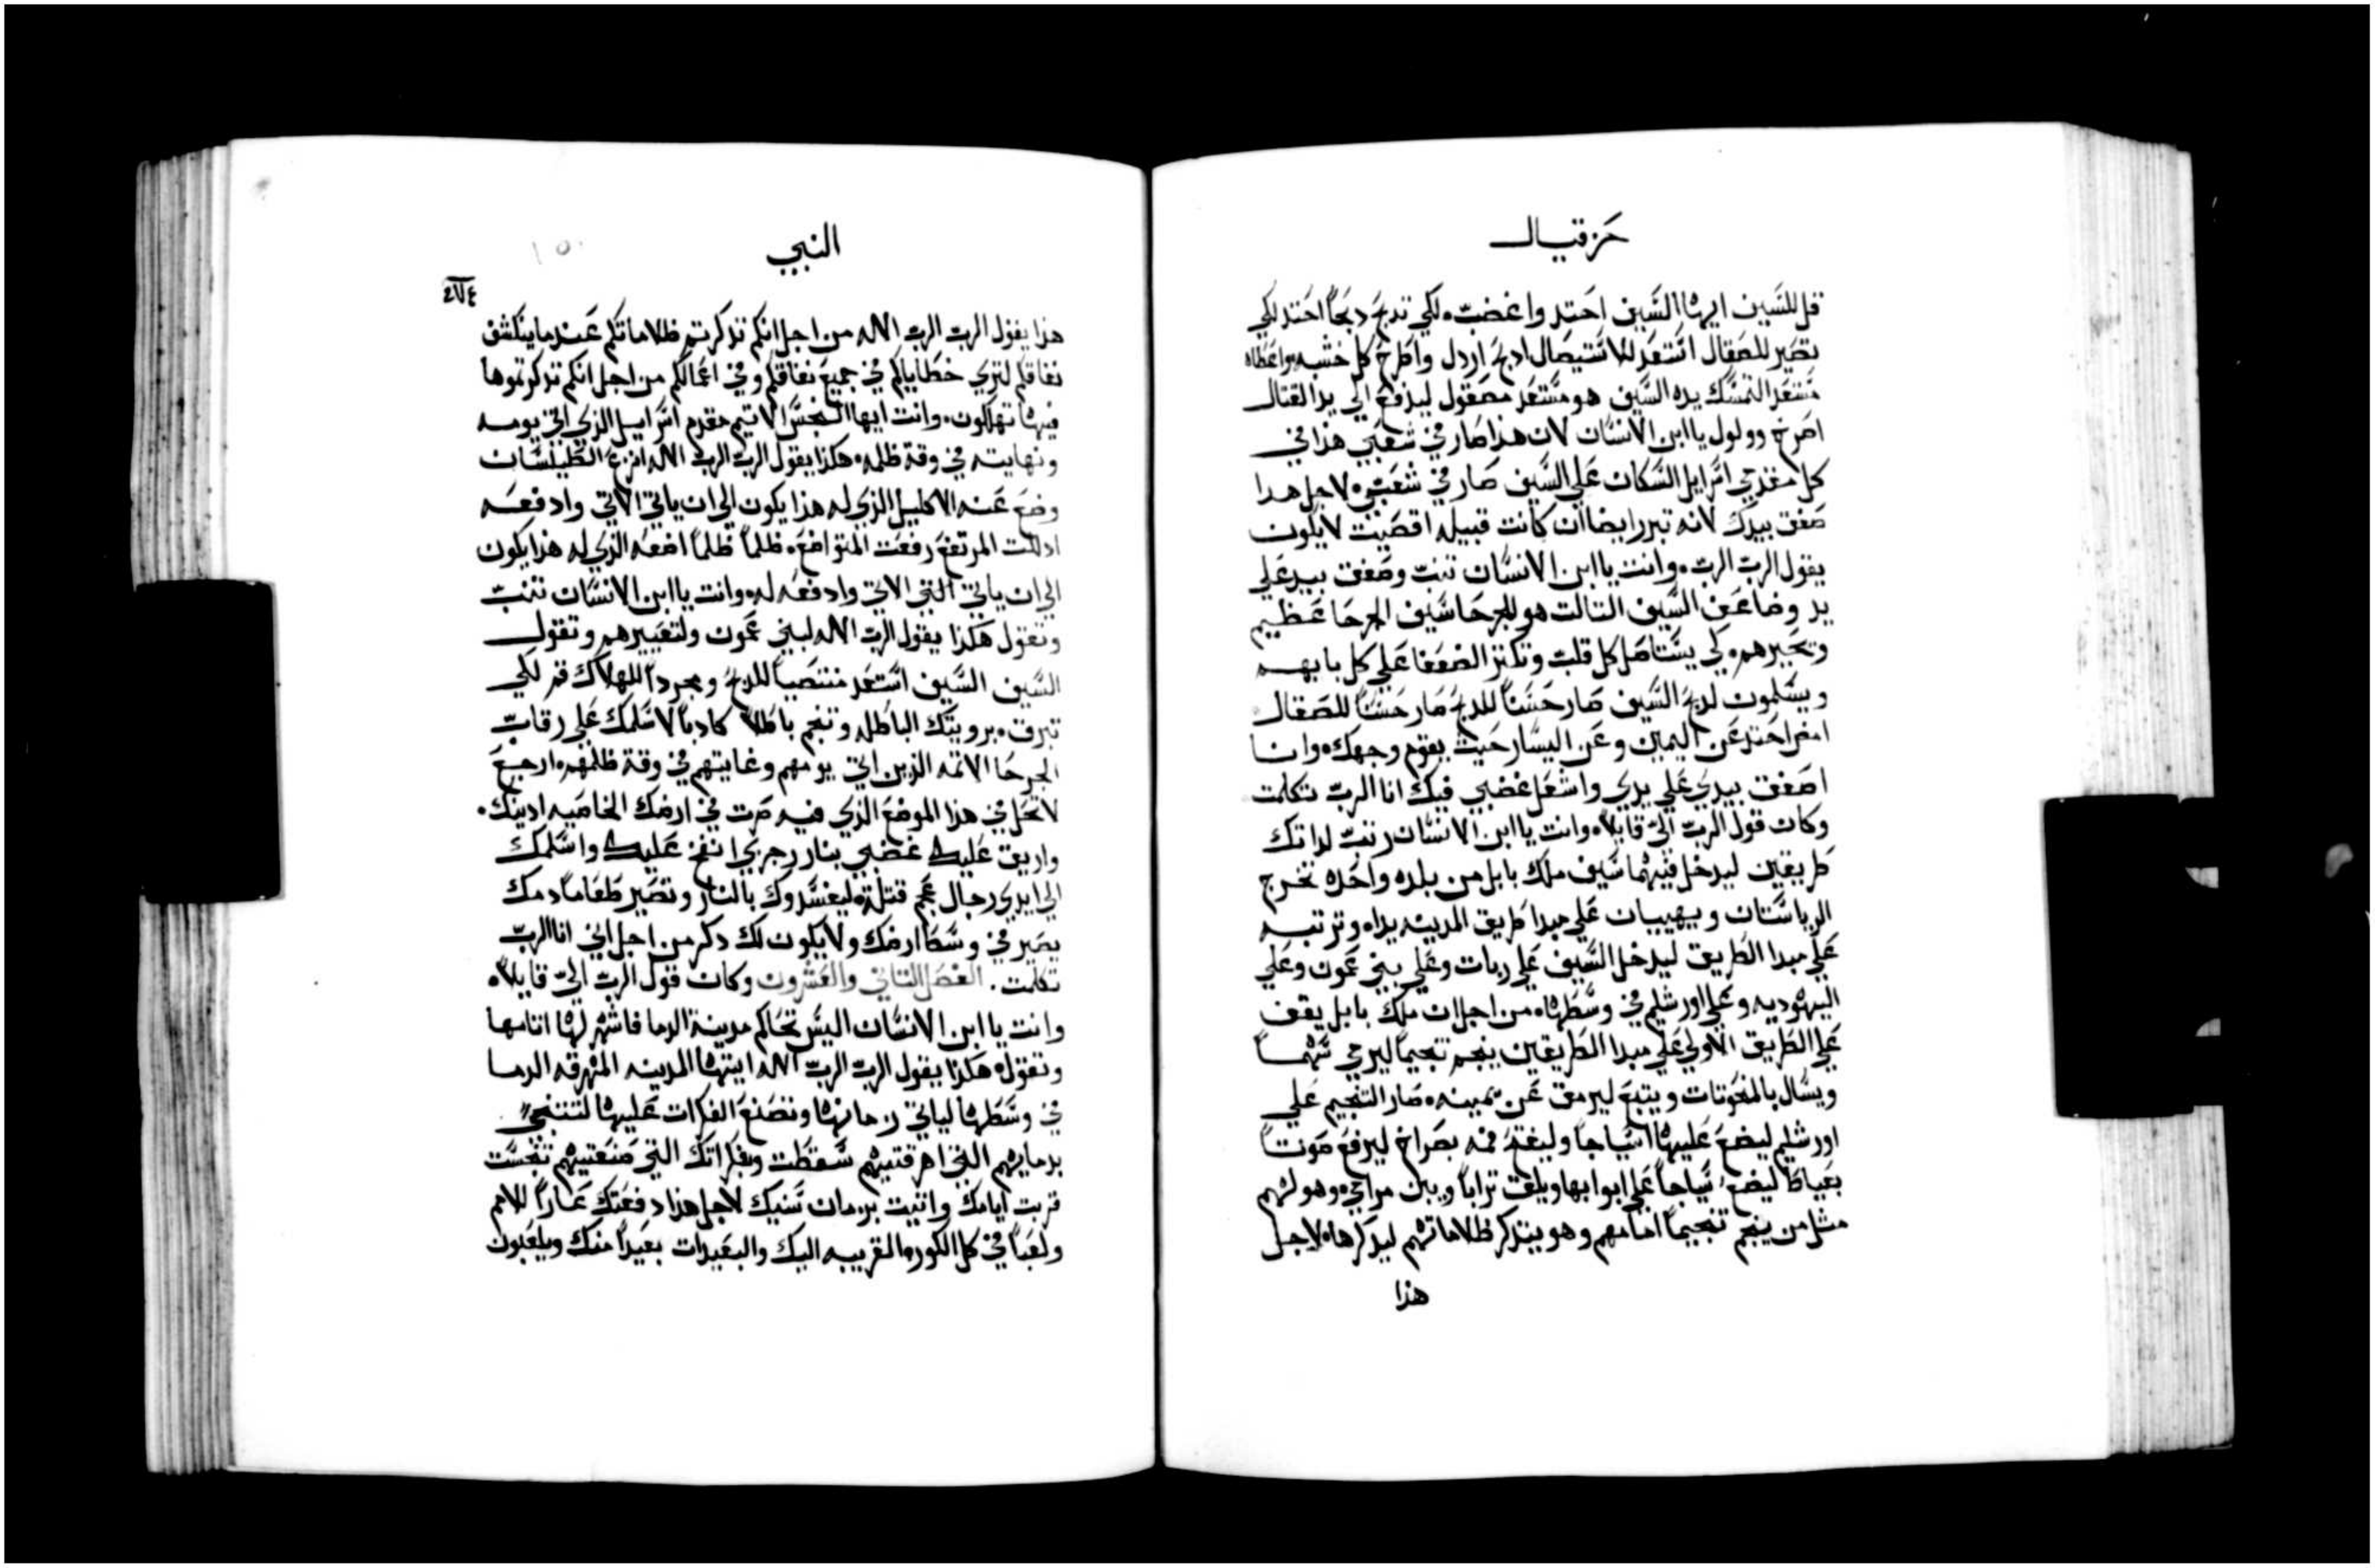 حزقيال
قل للسيف ايها السيف احتد واغضب. لكي تدبح دبحاً احتد لكي
تصير للصقال استعد للاستيصال ادبح اردل واطرح كل خشبه. واعطاه
مستعد التمسك يده السيف هو مستعد مصقول ليدفع الي يد القتال
اصرخ وولول يا ابن الانسان لان هذا صار في شعبي هذا في
كل مقدمي اسراييل السكان علي السيف صار في شعبي. لاجل هدا
صفق بيدك لانه تبرر ايضا ان كانت قبيله اقصيت لا يكون
يقول الرب الرب. وانت يا ابن الانسان تنبى وصفق بيد علي
يد وضاعف السيف التالت هو للجرحا سيف الجرحا عظيم
وتحيرهم. لكي يستاصل كل قلب وتكتر الضعفا علي كل بابهم
ويسلمون لدبح السيف صار حسناً للدبح صار حسناً للصقال
امض احتد عن اليمين وعن اليسار حيث يقوم وجهك. وانا
اصفق بيدي علي يدي واشعل غضبي فيك انا الرب تكلمت
وكان قول الرب الي قايلاً. وانت يا ابن الانسان رتب لداتك
طريقين ليدخل فيهما سيف ملك بابل من بلده واحده تخرج
الرياستان ويهييان علي مبدا طريق المدينه يداه وترتبه
علي مبدا الطريق ليدخل السيف علي ربات وعلي بني عمون وعلي
اليهوديه وعلي اورشليم في وسطها. من اجل ان ملك بابل يقف
علي الطريق الاولي علي مبدا الطريقين ينجم تنجيماً ليرمي سهماً
ويسال بالمنحوتات ويتبع ليرمق عن يمينه. صار التنجيم علي
اورشليم ليضع عليها اسياجاً وليفتح فمه بصراخ ليرفع صوتاً
بعياط ليضع سياجاً علي ابوابها ويلقي تراباً ويبني مرامي. وهو لهم
مثل من ينجم تنجيماً امامهم وهو يتدكر ظلاماتهم ليدكرها. لاجل
هذا
النبي
٢٧٤
هذا يقول الرب الرب الاله من اجل انكم تدكرتم ظلاماتكم عندما ينكشف
نفاقكم لتري خطاياكم في جميع نفاقكم وفي اعمالكم من اجل انكم تدكرتموها
فيها تهلكون. وانت ايها النجس الاتيم مقدم اسراييل الذي اتي يومه
ونهايته في وقة ظلمه. هكذا يقول الرب الرب الاله انزع الطيلسان
وضع عنه الاكليل الذي له هذا يكون الي ان ياتي الاتي وادفعه
ادللت المرتفع رفعت المتواضع. ظلماً ظلماً اضعه الذي له هذا يكون
الي ان ياتي التني الاتي وادفعه له. وانت يا ابن الانسان تنبى
وتقول هكذا يقول الرب الاله لبني عمون ولتعييرهم وتقول
السيف السيف استعد منتصباً للدبح ومجرداً للهلاك قم لكي
تبرق. برويتك الباطله وتنجم باطلاً كادباً لاسلمك علي رقاب
الجرحا الاتمه الذين اتي يومهم وغايتهم في وقة ظلمهم. ارجع
لا تحل في هدا الموضع الذي فيه صرت في ارضك الخاصيه ادينك.
واريق عليك غضبي بنار رجزي انفخ عليك واسلمك
الي ايدي رجال عجم قتله. ليفسدوك بالنار وتصير طعاماً دمك
يصير في وسط ارضك ولا يكون لك دكر من اجل اني انا الرب
تكلمت. الفصل التاني والعشرون وكان قول الرب الي قايلاً.
وانت يا ابن الانسان اليس تحاكم مدينة الدما فاشهر لها اتامها
وتقول. هكذا يقول الرب الرب الاله ايتها المدينه المهرقه الدما
في وسطها لياتي زمانها وتصنع الفكرات عليها لتتنجس
بدمايهم التي اهرقتيهم سقطت وبفكراتك التي صنعتيهم تنجست
قربت ايامك واتيت بزمان سنيك لاجل هذا دفعتك عاراً للامم
ولعباً في كل الكوره القريبه اليك والبعيدات بعيداً منك ويلعبون